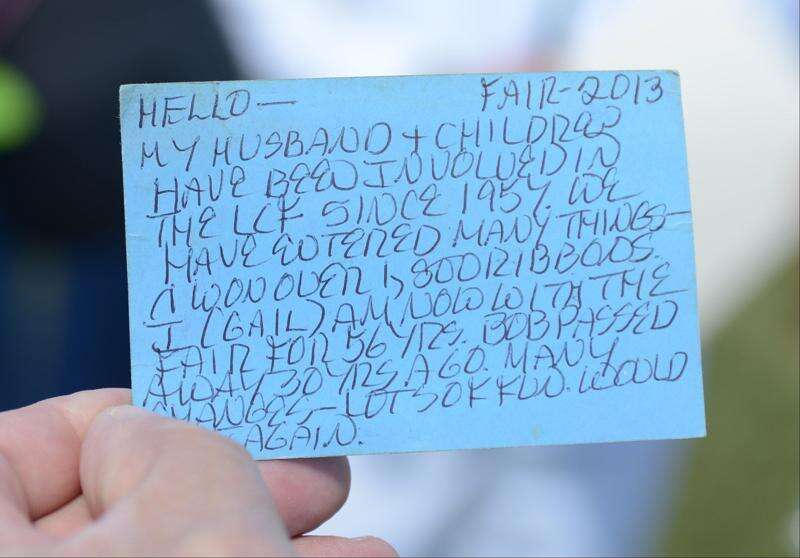 HELLO— FAIR-2013
MY HUSBAND + CHILDREN
HAVE BEEN INVOLVED IN
THE LCF SINCE 1957. WE
HAVE ENTERED MANY THINGS—
& WON OVER 1,800 RIBBONS.
I (GAIL) AM NOW WITH THE
FAIR FOR 56 YRS. BOB PASSED
AWAY 30 YRS. AGO. MANY
CHANGES – LOTS OF FUN. WOULD
AGAIN.